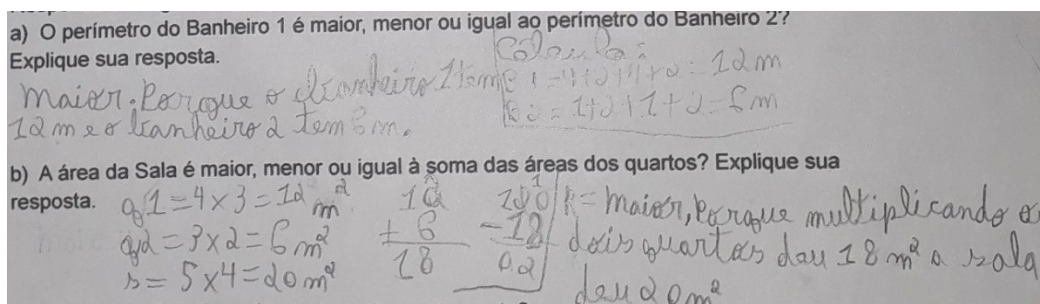 a) O perímetro do Banheiro 1 é maior, menor ou igual ao perímetro do Banheiro 2?
Explique sua resposta.
Cálculo:
maior. Porque o banheiro 1 tem
12 m e o banheiro 2 tem 6 m.
B 1 = 4+2+4+2 = 12 m
B 2 = 1+2+1+2 = 6 m
b) A área da Sala é maior, menor ou igual à soma das áreas dos quartos? Explique sua
resposta.
q1 = 4 x 3 = 12 m²
q2 = 3 x 2 = 6 m²
s = 5 x 4 = 20 m²
12
+ 6
18
- 18
02
R = maior, Porque multiplicando o
dois quartos deu 18 m² a sala
deu 20 m²